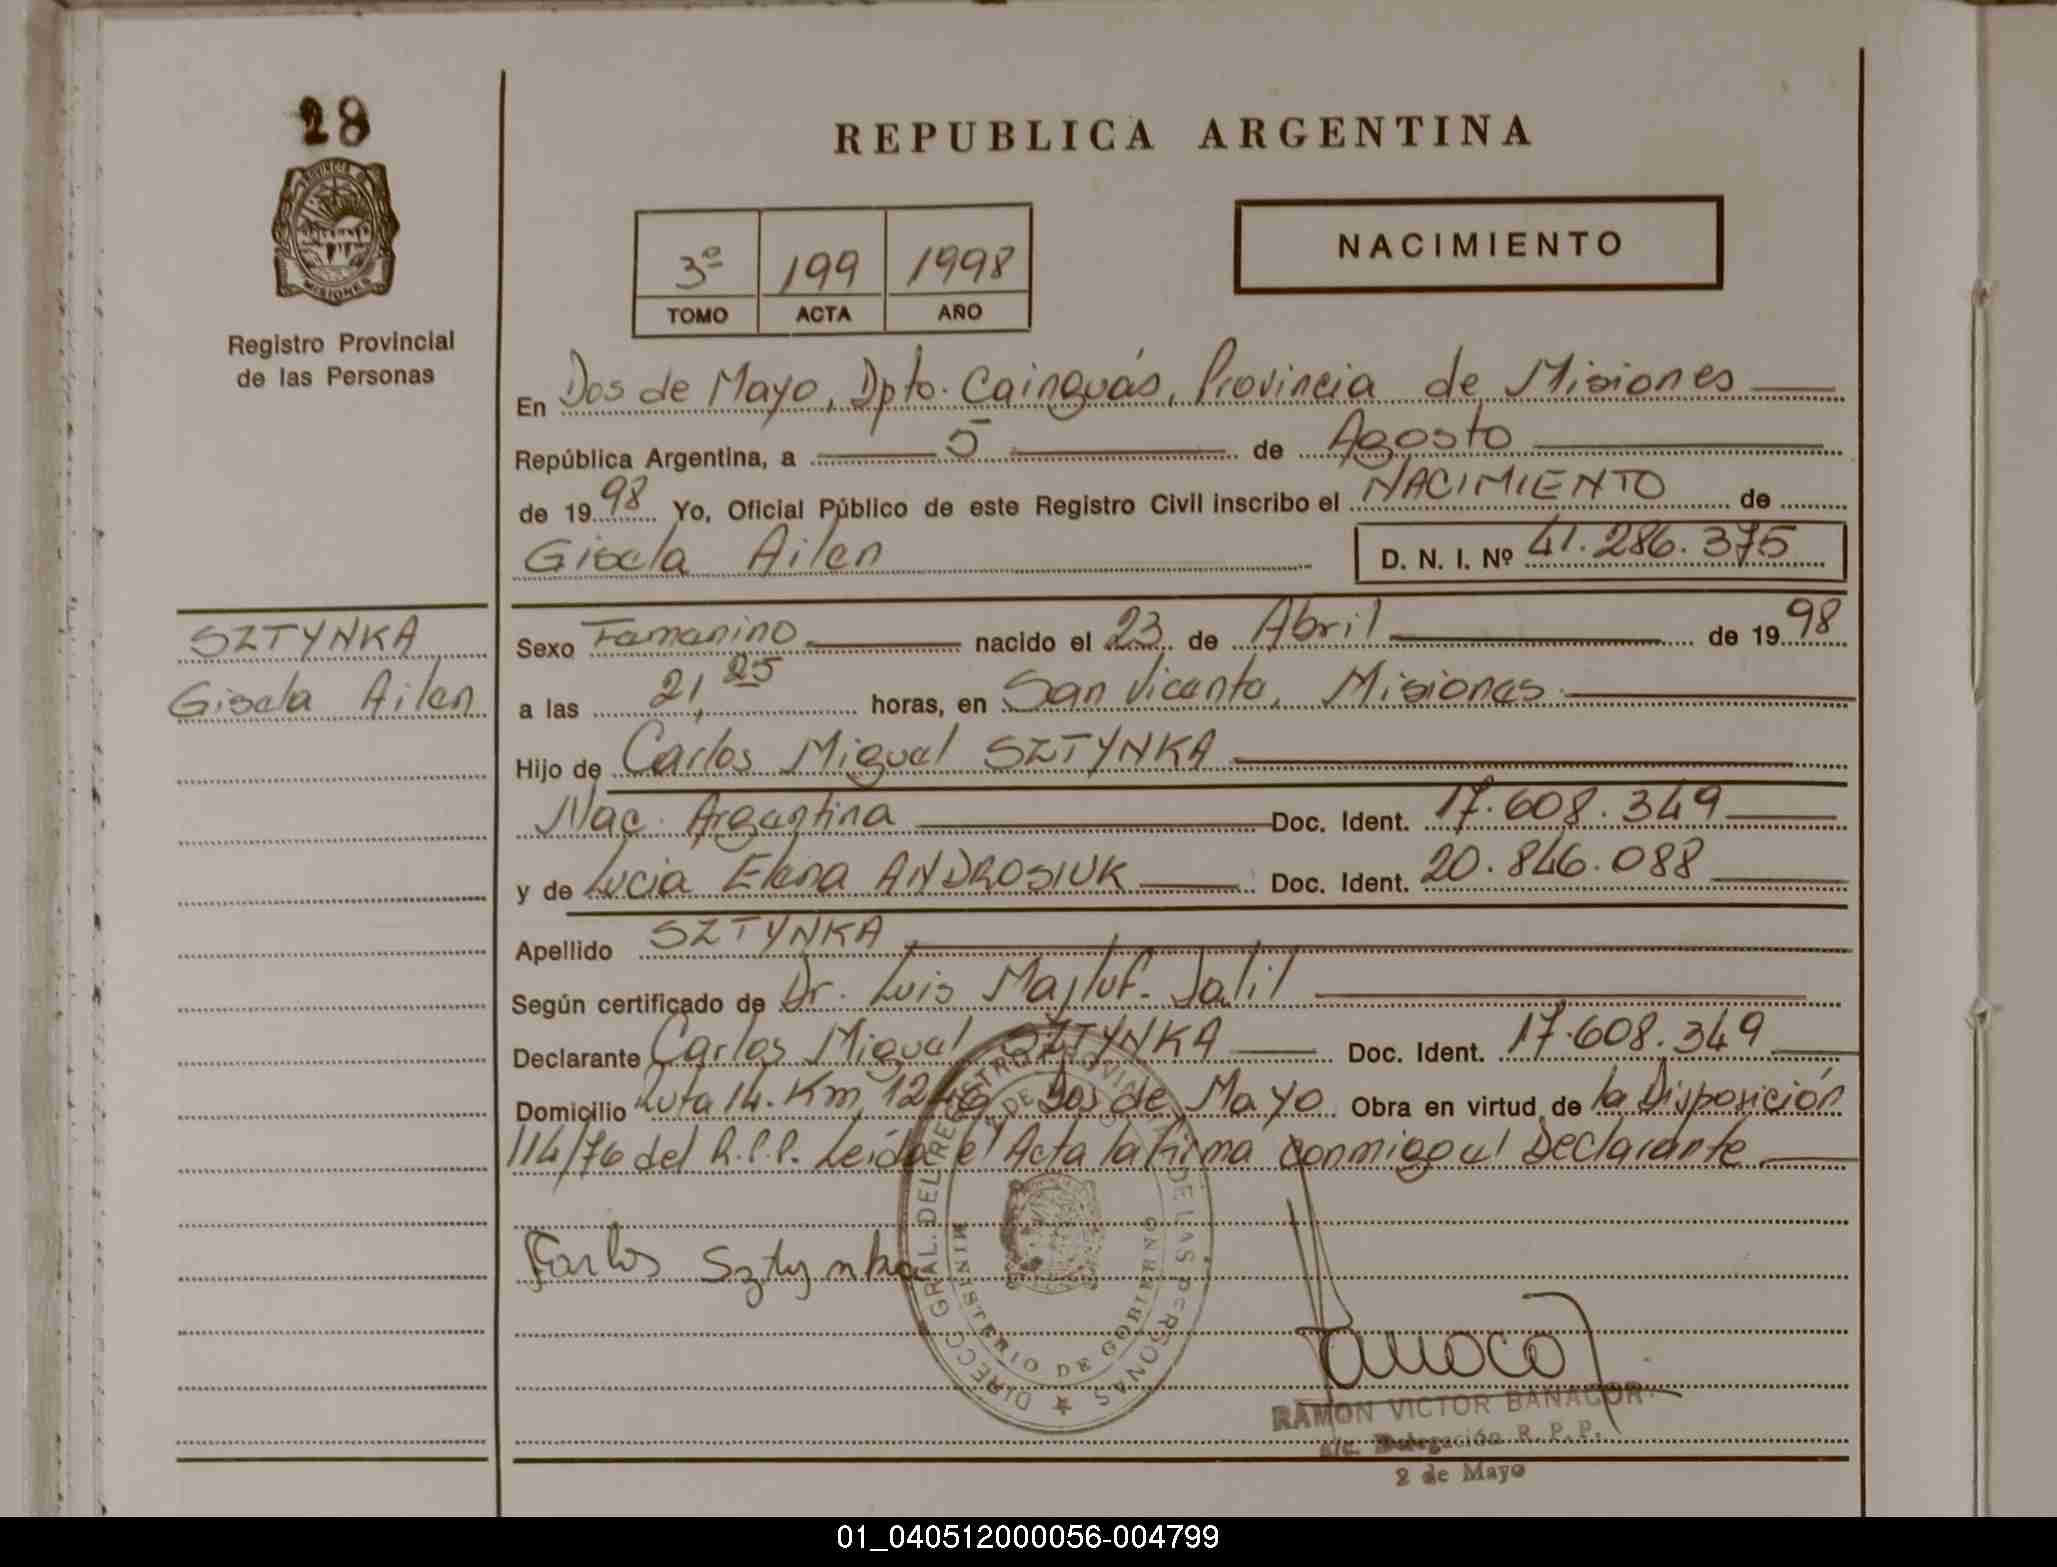 28
PROVINCIA DE
MISIONES
Registro Provincial
de las Personas
REPUBLICA ARGENTINA
3º 199 1998
TOMO ACTA AÑO
NACIMIENTO
En Dos de Mayo, Dpto. Cainguás, Provincia de Misiones
República Argentina, a 5 de Agosto
de 1998 Yo, Oficial Público de este Registro Civil inscribo el NACIMIENTO de
Gisela Ailen D. N. I. Nº 41.286.375
SZTYNKA
Gisela Ailen
Sexo Femenino nacido el 23 de Abril de 1998
a las 21,25 horas, en San Vicente, Misiones.
Hijo de Carlos Miguel SZTYNKA
Nac. Argentina Doc. Ident. 17.608.349
y de Lucia Elena ANDROSIUK Doc. Ident. 20.846.088
Apellido SZTYNKA
Según certificado de Dr. Luis Majluf. Jalil
Declarante Carlos Miguel SZTYNKA Doc. Ident. 17.608.349
Domicilio Ruta 14. Km Dos de Mayo Obra en virtud de la Disposición
114/76 del R.P.P. Leída el Acta la firma conmigo el Declarante
Carlos Sztynka
DIRECC. GRAL. DEL REGISTRO PROVINCIAL DE LAS PERSONAS
MINISTERIO DE GOBIERNO
RAMON VICTOR BANACOR
a/c. Delegación R. P. P.
2 de Mayo
01_040512000056-004799